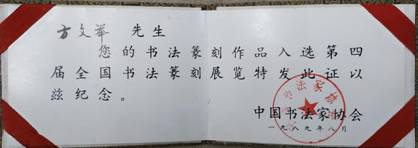 方文举 先生
您的书法篆刻作品入选第四
届全国书法篆刻展览特发此证以
兹纪念。
中国书法家协会
一九八九年八月